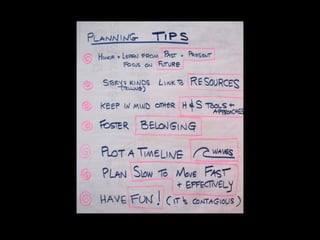 PLANNING TIPS
HONOR + LEARN FROM PAST + PRESENT
FOCUS ON FUTURE
STORYSKINDS LINK TO RESOURCES
(TELLING)
KEEP IN MIND OTHER H & S TOOLS +
APPROACHES
FOSTER BELONGING
PLOT A TIMELINE WAVES
PLAN SLOW TO MOVE FAST
+ EFFECTIVELY
HAVE FUN! (IT'S CONTAGIOUS)